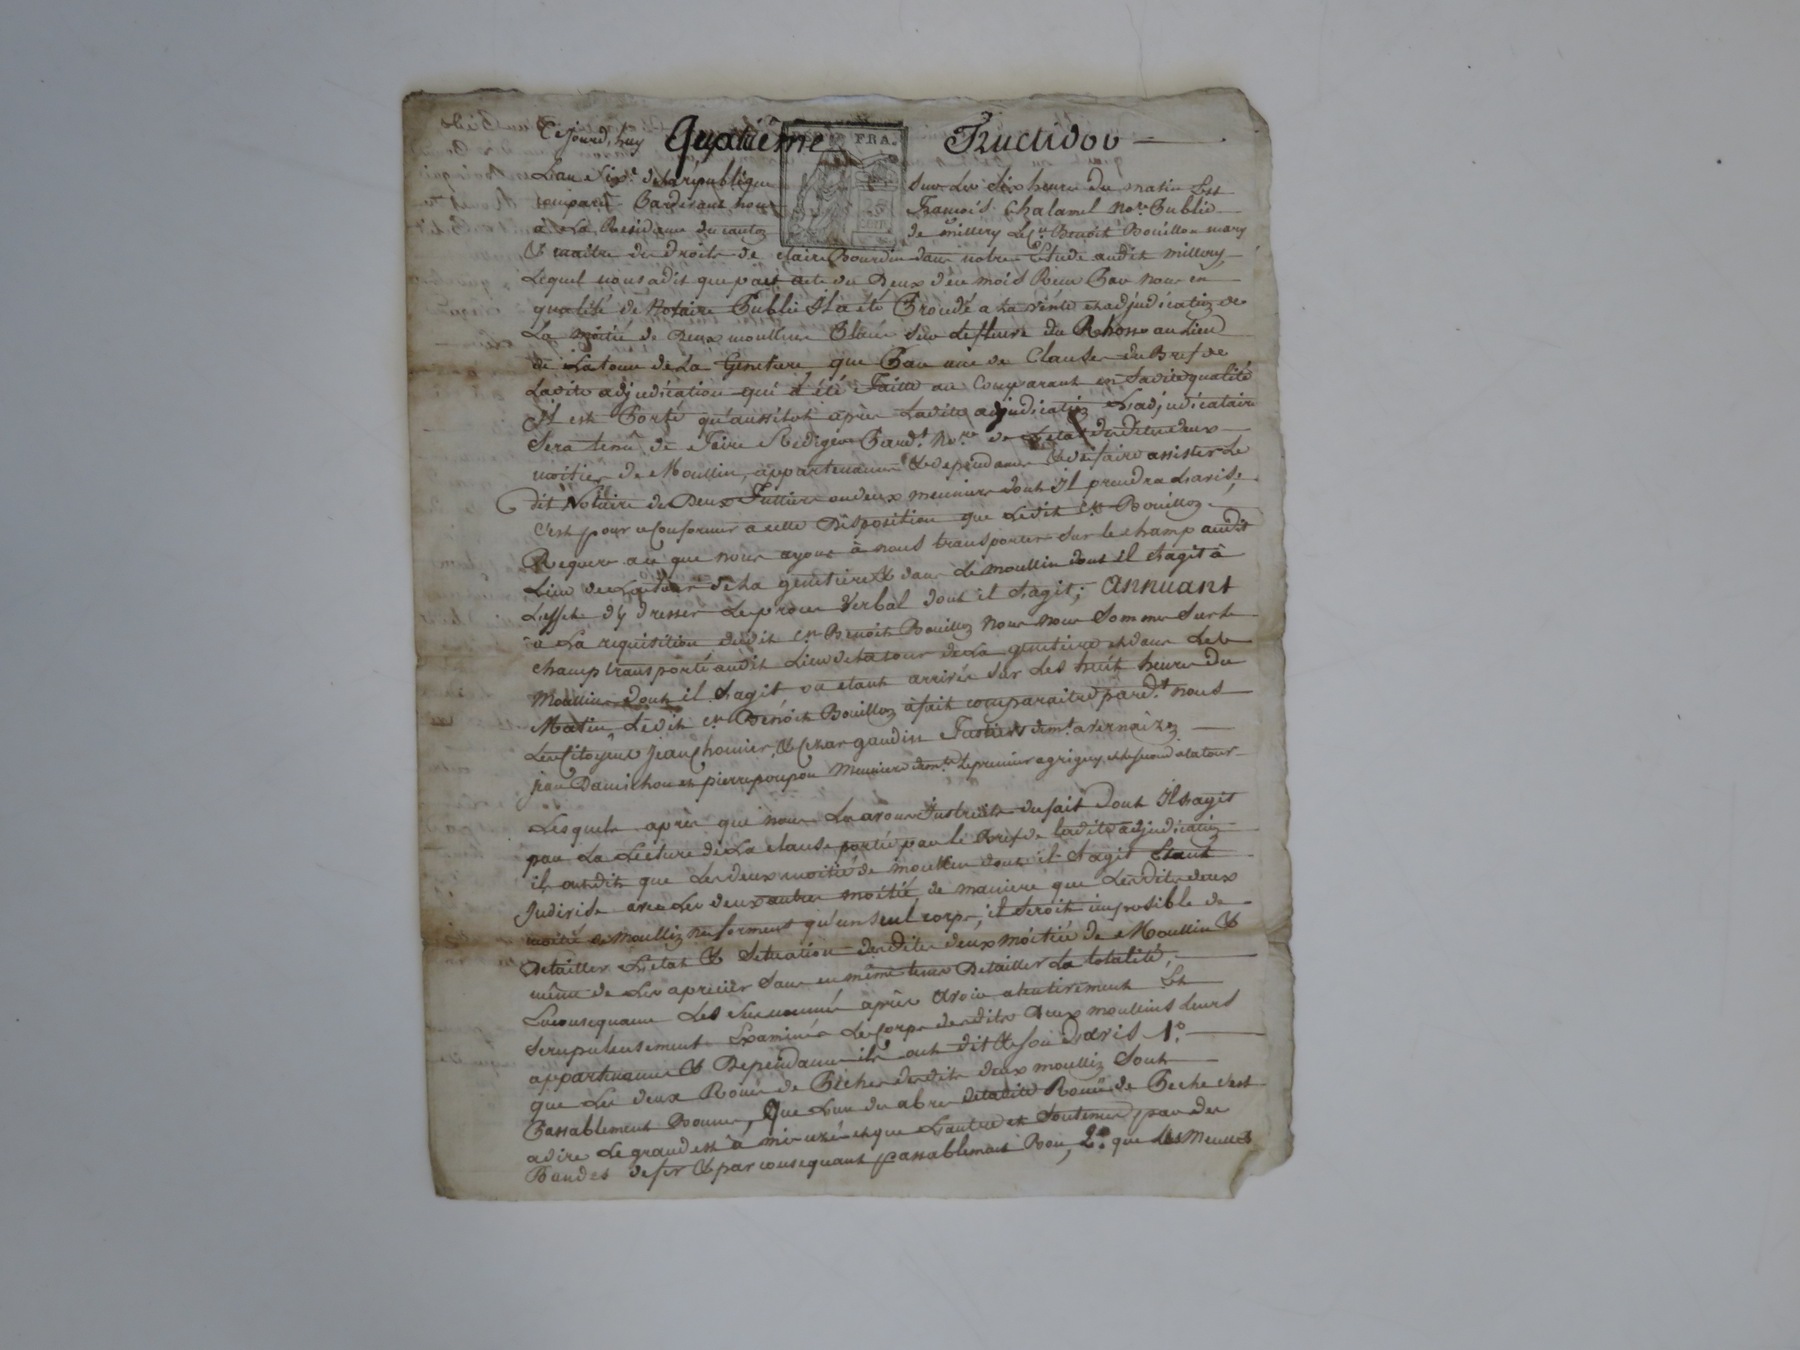 Cejourd'huy Quatrième Fructidor
L'an Six.e de la république sur les six heures du matin Est
comparu Pardevant nous François Chalamel No.re Public
à La Résidence du canton de millery Le C.n Benoît Bouillon mary
& maitre des droits de claire Bourdin dans notre Etude audit millery
Lequel nous a dit que par acte du Deux d'ée mois Reçu Par nous en
qualité de Notaire Public Il a été Procédé a La vente et adjudication de
La moitié de Deux moullins Placés sur Le fleuve du Rhône au Lieu
de La tour de La Genetiere, que Par une des Clauses du Bref de
Ladite adjudication qui a été Faitte au Comparant en Sadite qualité
Il est Porté qu'aussitot après Ladite adjudication L'adjudicataire
Sera tenu de Faire Rédiger Pard.t No.re de L'etat desdites deux
moitiés de Moullins, appartenances & dependances & de faire assister Le
dit Notaire de Deux Futtiers ou deux meuniers dont Il prendra L'avis,
C'est pour se Conformer a cette Disposition que Ledit C.n Bouillon
Requere ace que nous ayons à nous transporter sur le champ audit
Lieu de La tour de La genetiere & dans Le moullin dont il s'agit à
L'effet d'y dresser Le procès Verbal dont il s'agit; Annuant
à La requisition dudit C.n Benoît Bouillon Nous nous Sommes Sur le
champ transporté audit Lieu de La tour de La genetiere et dans Le
Moullin dont il s'agit ou etant arrivés sur Les huit heures du
Matin, Ledit C.n Benoît Bouillon a fait comparaitre pard.t nous
Les Citoyens jean honnier, & Cezar gaudin Fustiers dem.t a vernaizon
jean Damichon et pierre poupon Meuniers dem.t Le premier a grigny, et le second a La tour
Lesquels après que nous Les avons Instruits du fait dont Il s'agit
par La Lecture de La clause portée par le Bref de ladite adjudication
ils ont dit que Les deux moitiés de moullin dont il s'agit Etant
Indivise avec Les deux autres moitié, de maniere que Lesdites deux
moitié de moullin ne forment qu'un seul corps, il seroit impossible de
détailler L'etat & Situation desdites deux moitiés de Moullin &
même de Les aprecier Sans en même tems Détailler La totalité,
En consequance Les Susnommés après Avoir atentivement Et
Scrupuleusement Examinés Le Corps desdits Deux moulins Leurs
appartenances & Dependances ils ont dit & sont d'avis 1.o
que Les deux Roues de Piches desdits deux moullin Sont
Passablement Bonnes, Que L'un des abres de ladite Rouë de Peche c'est
a dire Le grand est à mi uzé et que L'autre est Soutenu par des
Bandes de fer & par consequant passablement Bon, 2.o que Les Meules